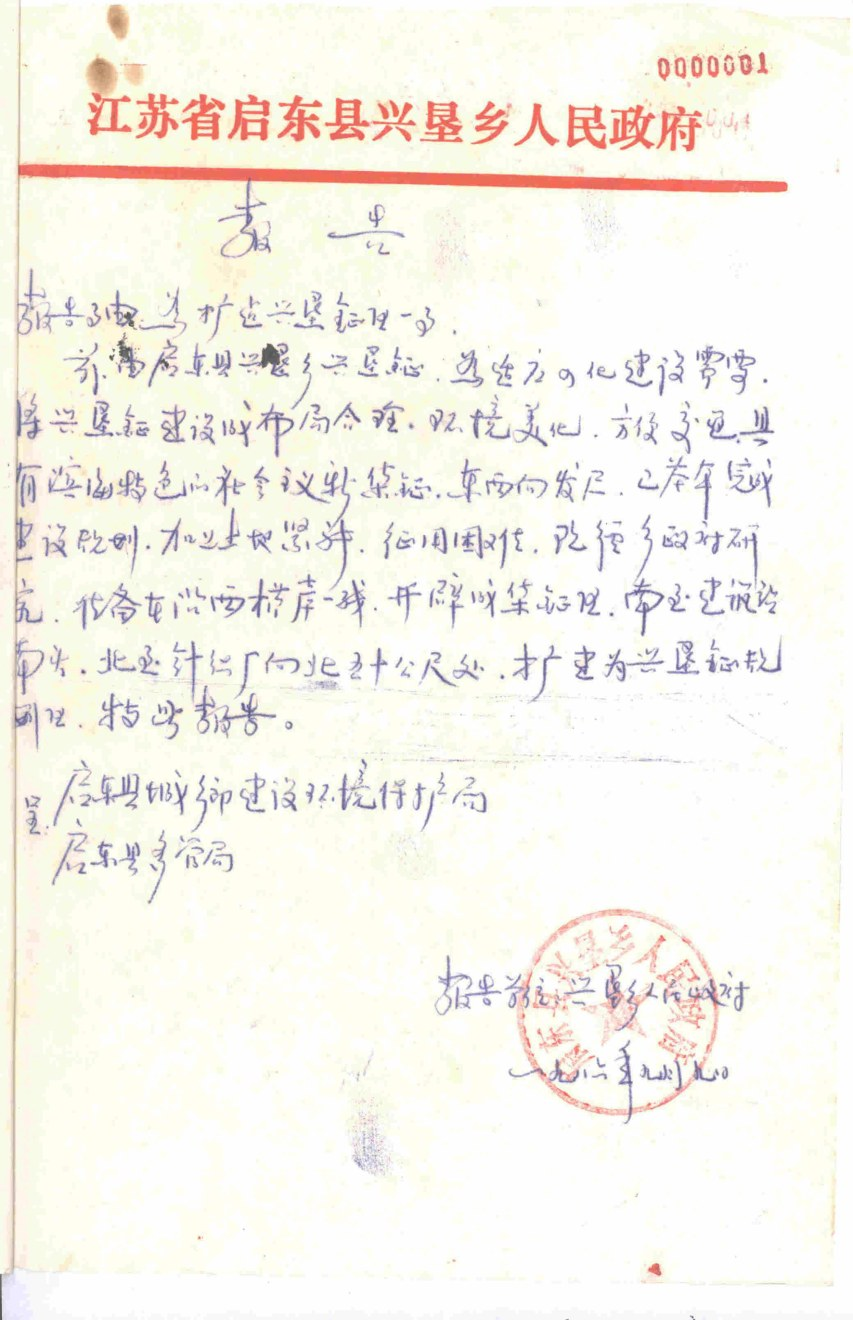 0000001
江苏省启东县兴垦乡人民政府
报告
报告事由：为扩近兴垦镇区一事．
兹由启东县兴垦乡兴垦镇．为适应四化建设需要．
将兴垦镇建设成布局合理．环境美化．方便交通．具
有滨海特色的社会主义新集镇．东西向发展．已基本完成
建设规划．加上土地紧张．征用困难．现经乡政府研
究．准备在沿西横岸一线．开辟成集镇区．南至建筑站
南头．北至针织厂向北五十公尺处．扩建为兴垦镇规
划区．特此报告。
呈：启东县城乡建设环境保护局
启东县多管局
报告单位：兴垦乡人民政府
一九八六年九月九日
启东县兴垦乡人民政府